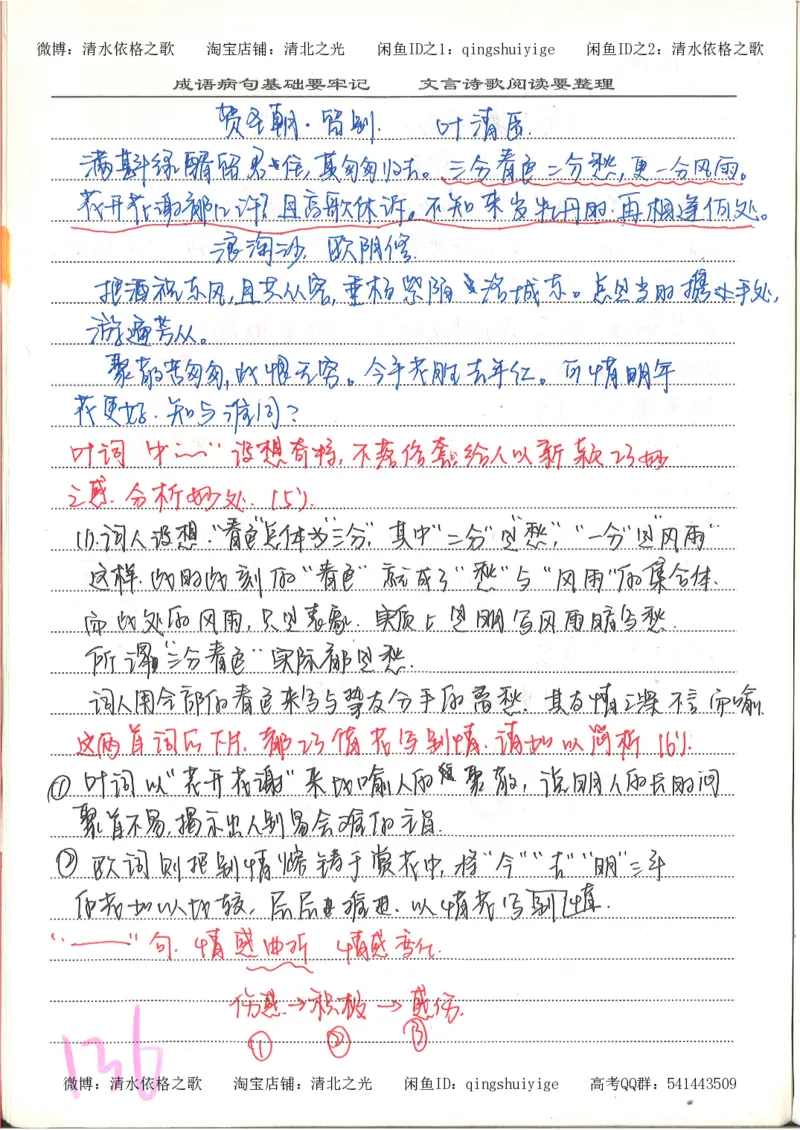 微博：清水依格之歌 淘宝店铺：清北之光 闲鱼ID之1：qingshuiyige 闲鱼ID之2：清水依格之歌
成语病句基础要牢记 文言诗歌阅读要整理
贺圣朝·留别. 叶清臣.
满斟绿醑留君住，莫匆匆归去。三分春色二分愁，更一分风雨。
花开花谢都几许？且高歌休诉。不知来岁牡丹时.再相逢何处。
浪淘沙. 欧阳修.
把酒祝东风，且共从容，垂杨紫陌洛城东。总是当时携手处，
游遍芳丛。
聚散苦匆匆，此恨无穷。今年花胜去年红。可惜明年
花更好.知与谁同？
叶词"中——"设想奇特，不落俗套给人以新颖巧妙
之感.分析妙处.（5'）.
(1).词人设想."春色"总体为"三分"，其中"二分"是"愁"，"一分"是"风雨"
这样.此时此刻的"春色"就成了"愁"与"风雨"的集合体.
而此处的风雨，只是表象.实质上是明写风雨暗写愁.
所谓"三分春色"实际都是愁.
词人用全部的春色来写与挚友分手的离愁.其友情之深不言而喻.
这两首词后下片.都巧借花写别情.请加以简析（6'）.
①叶词以"花开花谢"来比喻人的聚散，说明人的长时间
聚首不易，揭示出人别易会难的主旨.
②欧词则把别情熔铸于赏花中，将"今""去""明"三年
的花加以比较，层层推进.以惜花写别情.
"——"句.情感曲折 情感变化.
伤感→积极→感伤.
① ② ③
136
微博：清水依格之歌 淘宝店铺：清北之光 闲鱼ID：qingshuiyige 高考QQ群：541443509